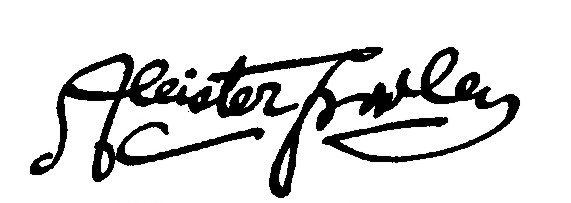 Aleister Crowley